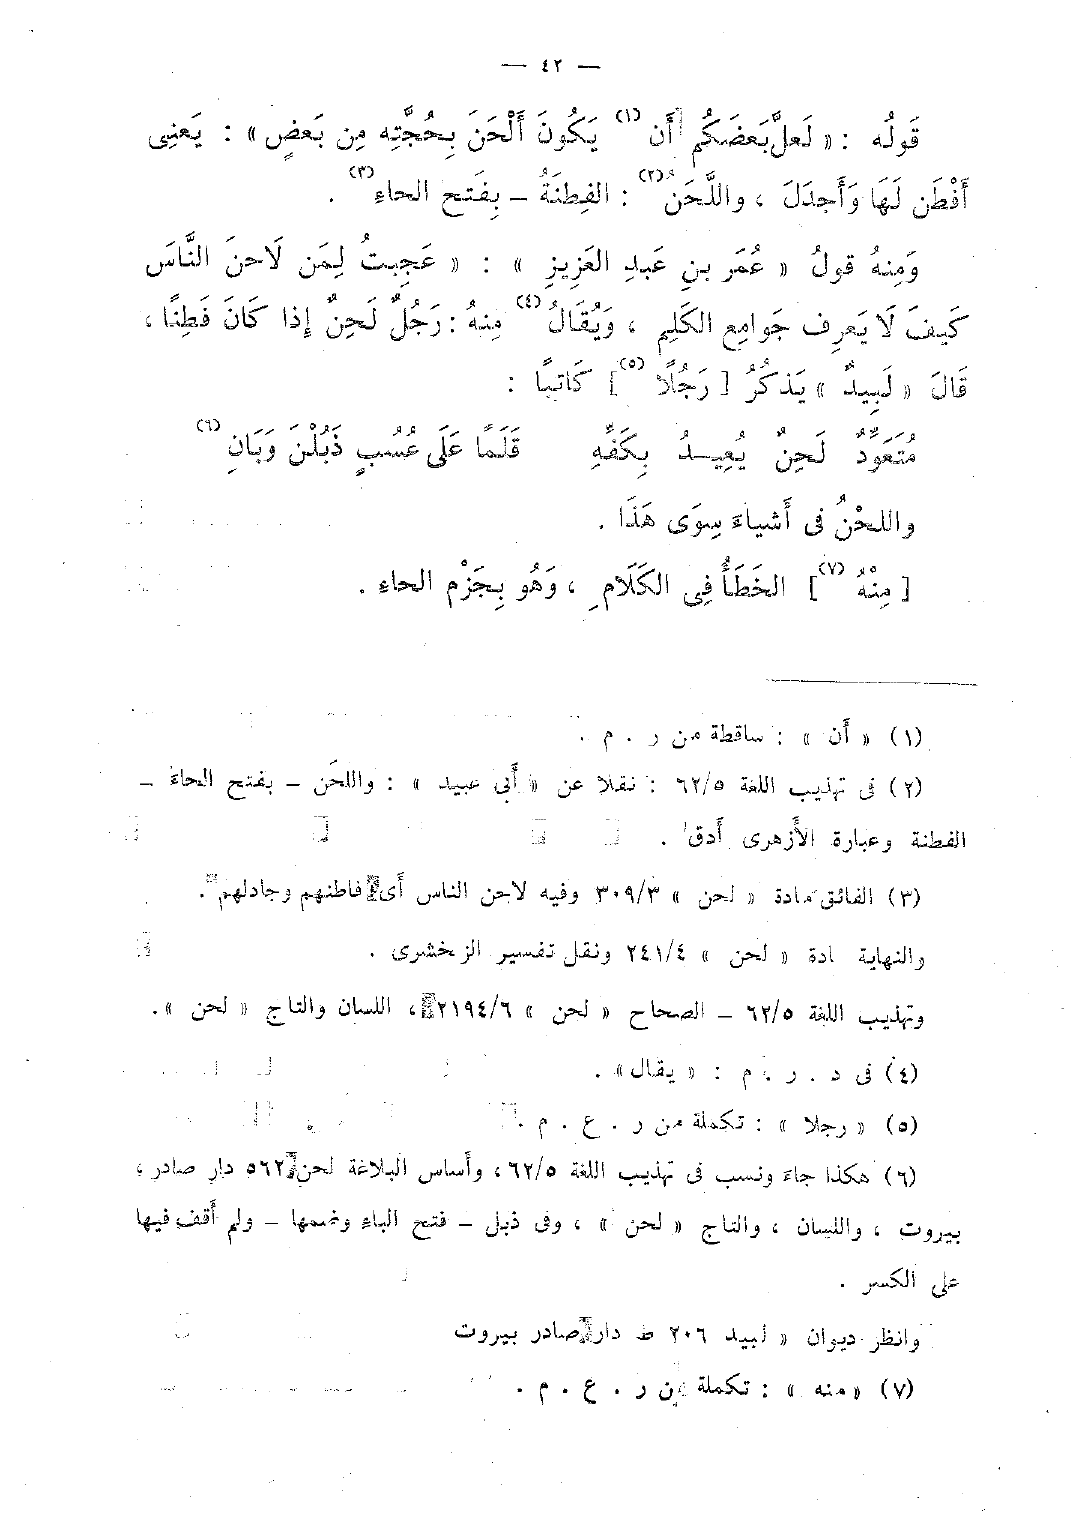 — ٤٢ —
قَولُه : « لَعلَّ بَعضَكُم أَن (١) يَكُونَ أَلْحَنَ بِحُجَّتِه مِن بَعَضٍ » : يَعنِى
أَفْطَن لَهَا وَأَجدَلَ ، واللَّحَنُ (٢) : الفِطنَةُ – بِفَتح الحاءِ (٣) .
وَمِنهُ قولُ « عُمَر بنِ عَبدِ العَزِيزِ » : « عَجِبتُ لِمَن لَاحنَ النَّاسَ
كَيفَ لَا يَعرِف جَوامِع الكَلِم ، وَيُقَالُ (٤) مِنهُ : رَجُلٌ لَحِنٌ إذا كَانَ فَطِنًا ،
قَالَ « لَبِيدٌ » يَذكُرُ [ رَجُلًا (٥) ] كَاتبًا :
مُتَعَوِّدٌ لَحِنٌ يُعِيــدُ بِكَفِّهِ قَلَمًا عَلَى عُسُبٍ ذَبُلْنَ وَبَانِ (٦)
واللحْنُ فى أَشياءَ سِوَى هَذَا .
[ مِنْهُ (٧) ] الخَطَأُ فِى الكَلَامِ ، وَهُو بِجَزْم الحاءِ .
(١) « أَن » : ساقطة من ر . م .
(٢) فى تهذيب اللغة ٦٢/٥ : نقلا عن « أَبى عبيد » : واللحَن – بفتح الحاءَ –
الفطنة وعبارة الأَزهرى أَدق .
(٣) الفائق مادة « لحن » ٣٠٩/٣ وفيه لاحن الناس أَى فاطنهم وجادلهم .
والنهاية ادة « لحن » ٢٤١/٤ ونقل تفسير الزمخشرى .
وتهذيب اللغة ٦٢/٥ – الصحاح « لحن » ٢١٩٤/٦ ، اللسان والتاج « لحن » .
(٤) فى د . ر . م : « يقال » .
(٥) « رجلا » : تكملة من ر . ع . م .
(٦) هكذا جاءَ ونسب فى تهذيب اللغة ٦٢/٥ ، وأَساس البلاغة لحن ٥٦٢ دار صادر ،
بيروت ، واللسان ، والتاج « لحن » ، وفى ذبل – فتح الباء وضمها – ولم أَقف فيها
على الكسر .
وانظر ديوان « لبيد ٢٠٦ ط دار صادر بيروت
(٧) « منه » : تكملة من ر . ع . م .